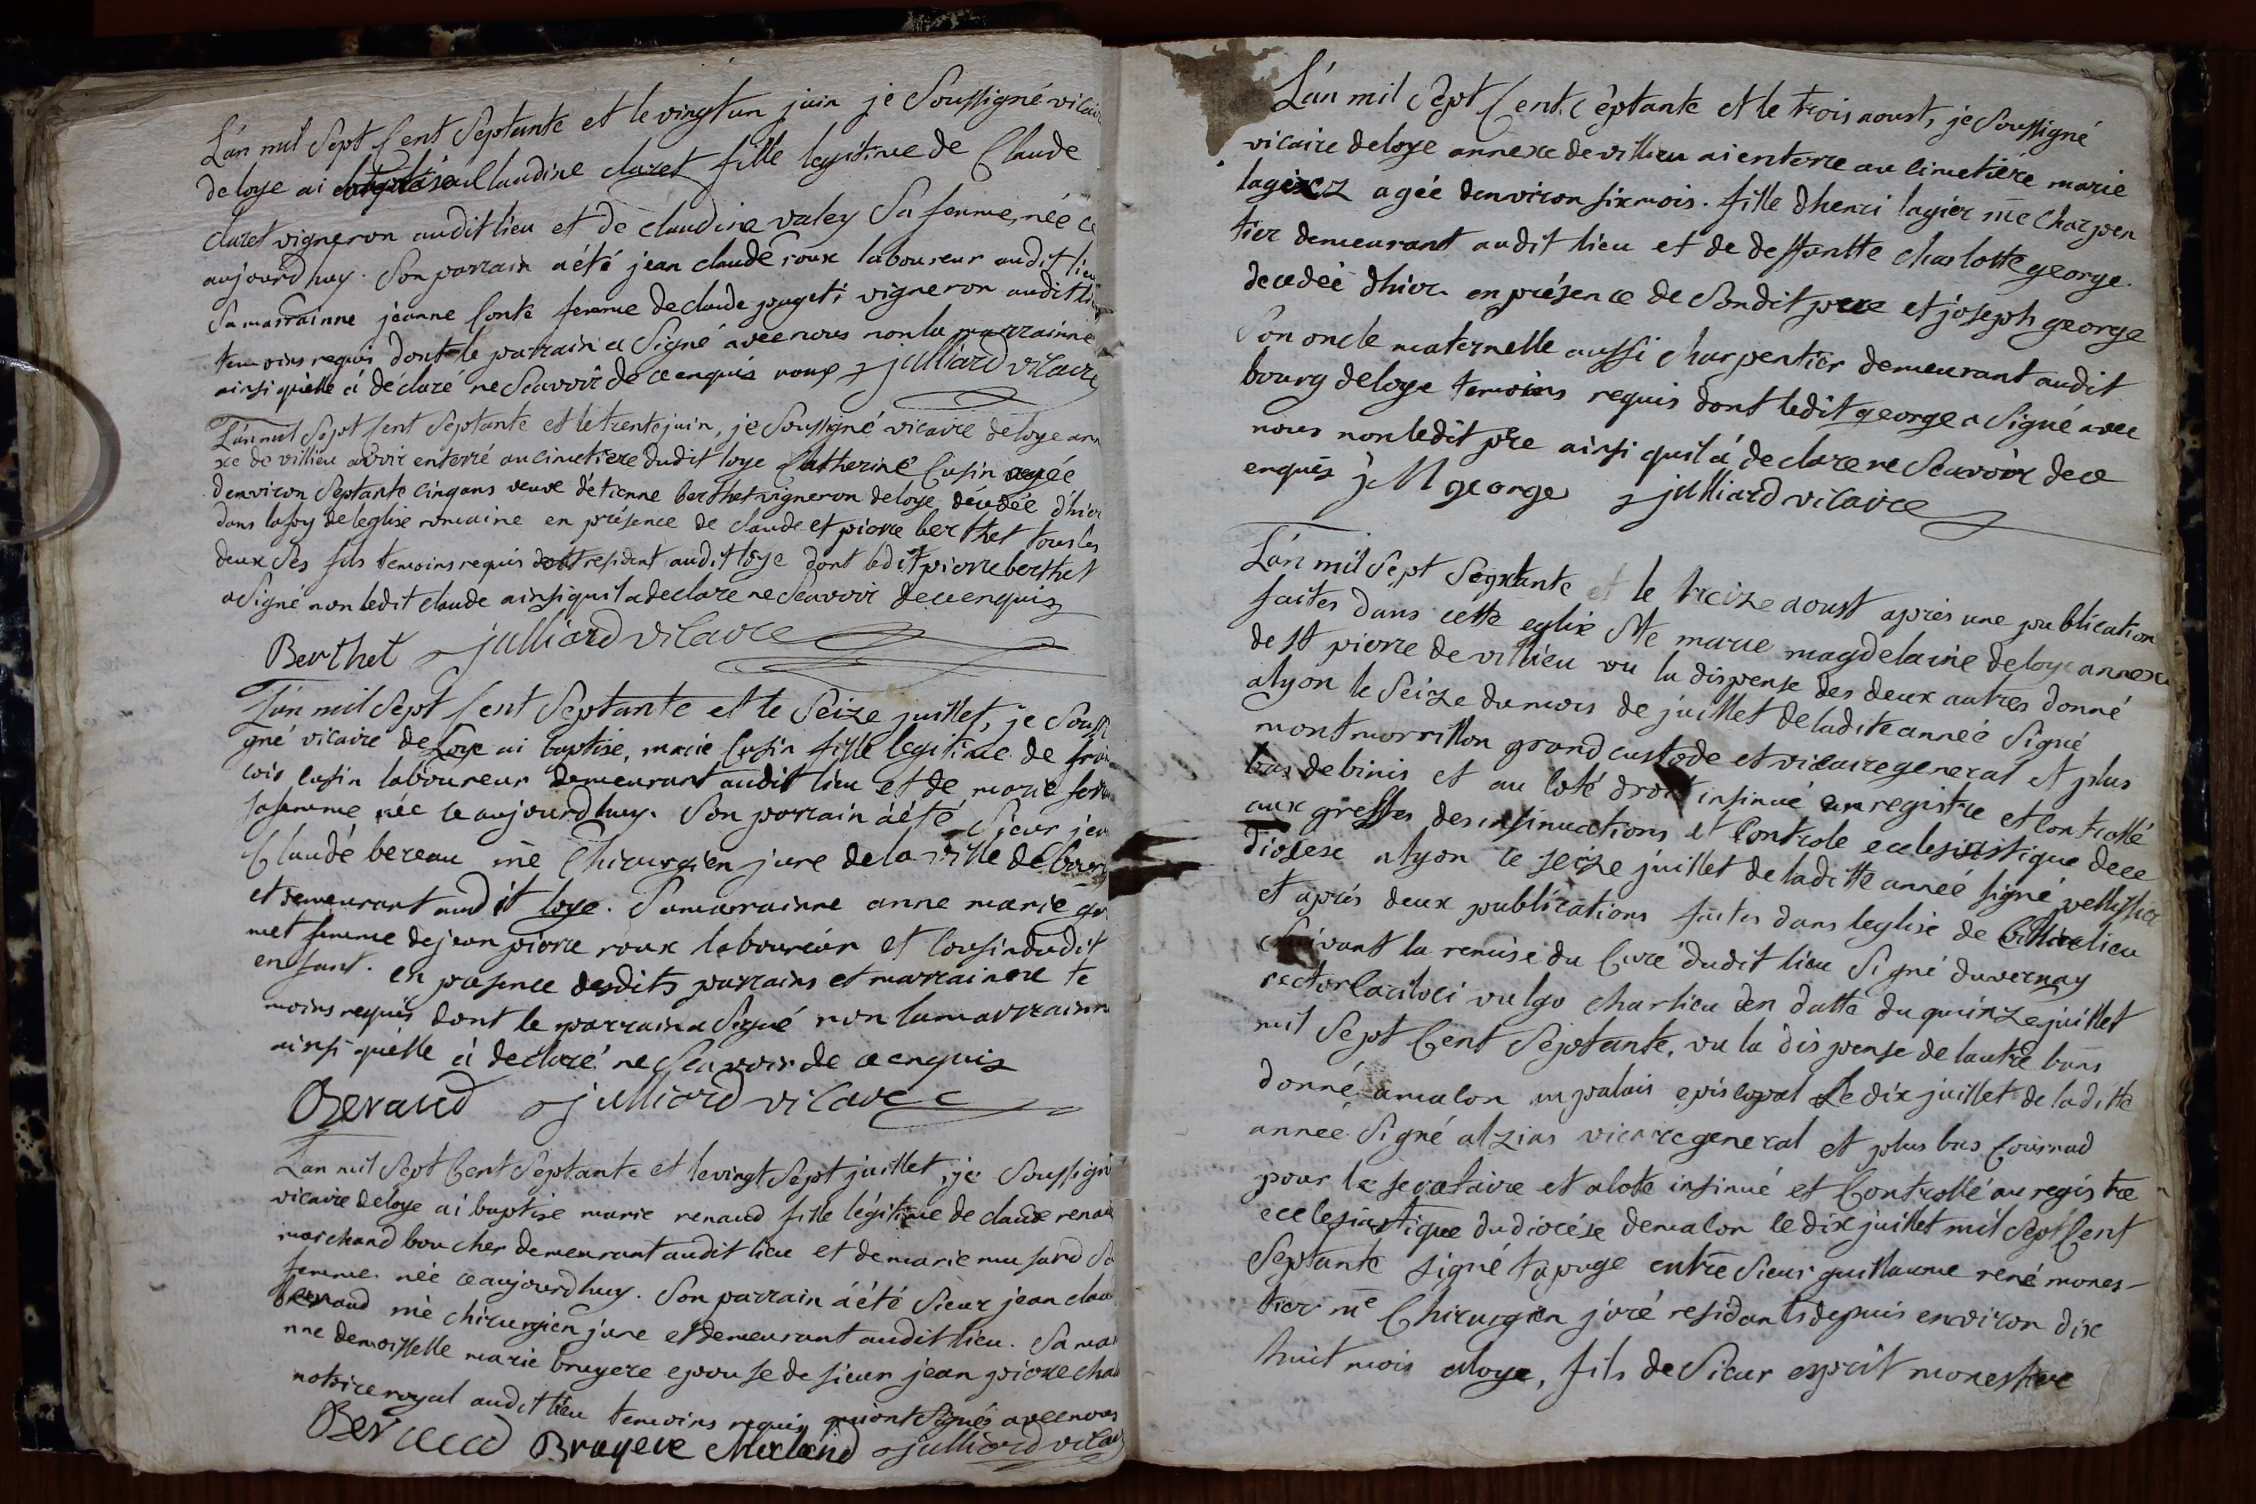 L'an mil sept cent septante et le vingt un juin je soussigné vicaire
de loye ai baptisé claudine claret fille legitime de Claude
claret vigneron audit lieu et de claudine valey sa femme, née ce
aujourd'huy. Son parrain a été jean claude roux laboureur audit lieu
Sa marrainne jeanne conte femme de claude pugeti vigneron audit lieu
temoins requis dont le parrain a signé avec nous non la marrainne
ainsi quelle á déclaré ne scavoir de ce enquis roux julliard vicaire
L'an mil sept cent septante et le trente juin, je soussigné vicaire de loye ann
xe de villieu avoir enterré au cimetiere dudit loye Catherine Cusin agée
denviron septante cinq ans veuve d'étienne berthet vigneron de loye decedée d'hier
dans la foy de leglise romaine en présence de claude et pierre berthet tous les
deux ses fils temoins requis resident audit loye dont ledit pierre berthet
a signé non ledit claude ainsi quil a declare ne scavoir de ce enquis
Berthet julliard vicaire
L'an mil sept cent septante et le seize juillet, je soussi
gné vicaire de Loye ai baptisé, marie Cusin fille legitime de fran
cois cusin laboureur demeurant audit lieu et de marie
sa femme née ce aujourd huy. Son parrain a été sieur jean
Claude bereau me Chirurgien jure de la ville de bourg
et demeurant audit loye. Sa marrainne anne marie
met femme de jean pierre roux laboureur et cousin dudit
enfant. en presence desdits parrains et marrainne te
moins requis dont le parrain a signé non la marrainne
ainsi quelle á declaré ne scavoir de ce enquis
Beraud julliard vicaire
L'an mil sept cent septante et le vingt sept juillet, je soussigné
vicaire de loye ai baptisé marie renaud fille légitime de claude renaud
marchand boucher demeurant audit lieu et de marie musard sa
femme née ce aujourd huy. Son parrain a été sieur jean claude
beraud me chirurgien jure et demeurant audit lieu. Sa mar
nne demoisselle marie bruyere epouse de sieur jean pierre cha
notaire royal audit lieu temoins requis qui ont signés avec nous
Beraud Bruyere julliard vicaire
L'an mil sept cent septante et le trois aoust, je soussigné
vicaire de loye annexe de villieu ai enterre au cimetiére marie
lagier agée denviron six mois. fille dhenri lagier me charpen
tier demeurant audit lieu et de deffuntte charlotte george.
decedée dhier en présence de sondit pere et joseph george
son oncle maternelle aussi charpentier demeurant audit
bourg de loye temoins requis dont ledit george a signé avec
nous non ledit pre ainsi quil á declare ne scavoir de ce
enquis j M george julliard vicaire
L'an mil sept septante et le treize aoust aprés une publication
faites dans cette eglise Ste marie magdelaine de loye annexe
de st pierre de villieu vu la dispense des deux autres donné
a lyon le seize du mois de juillet de ladite année signé
montmorrillon grand custode et vicaire general et plus
bas de binis et au coté droit insinué en registre et controllé
aux greffes des insinuations et controle ecclesiastique de ce
diocese a lyon le seize juillet de laditte année signé
et aprés deux publications faites dans leglise de lieu
suivant la remise du curé dudit lieu signé duvernay
rector cariloci vulgo charlieu en datte du quinze juillet
mil sept cent septante, vu la dispense de lautre bans
donné a macon au palais episcopal le dix juillet de laditte
année signé alzias vicaire general et plus bas cournud
pour le secretaire et a coté insinué et controllé au registre
ecclesiastique du diocése de macon le dix juillet mil sept cent
septante signé tapuge entre sieur guillaume rené mones-
tier me Chirurgien juré residants depuis environ dix
huit mois a loye, fils de sieur esprit monestier